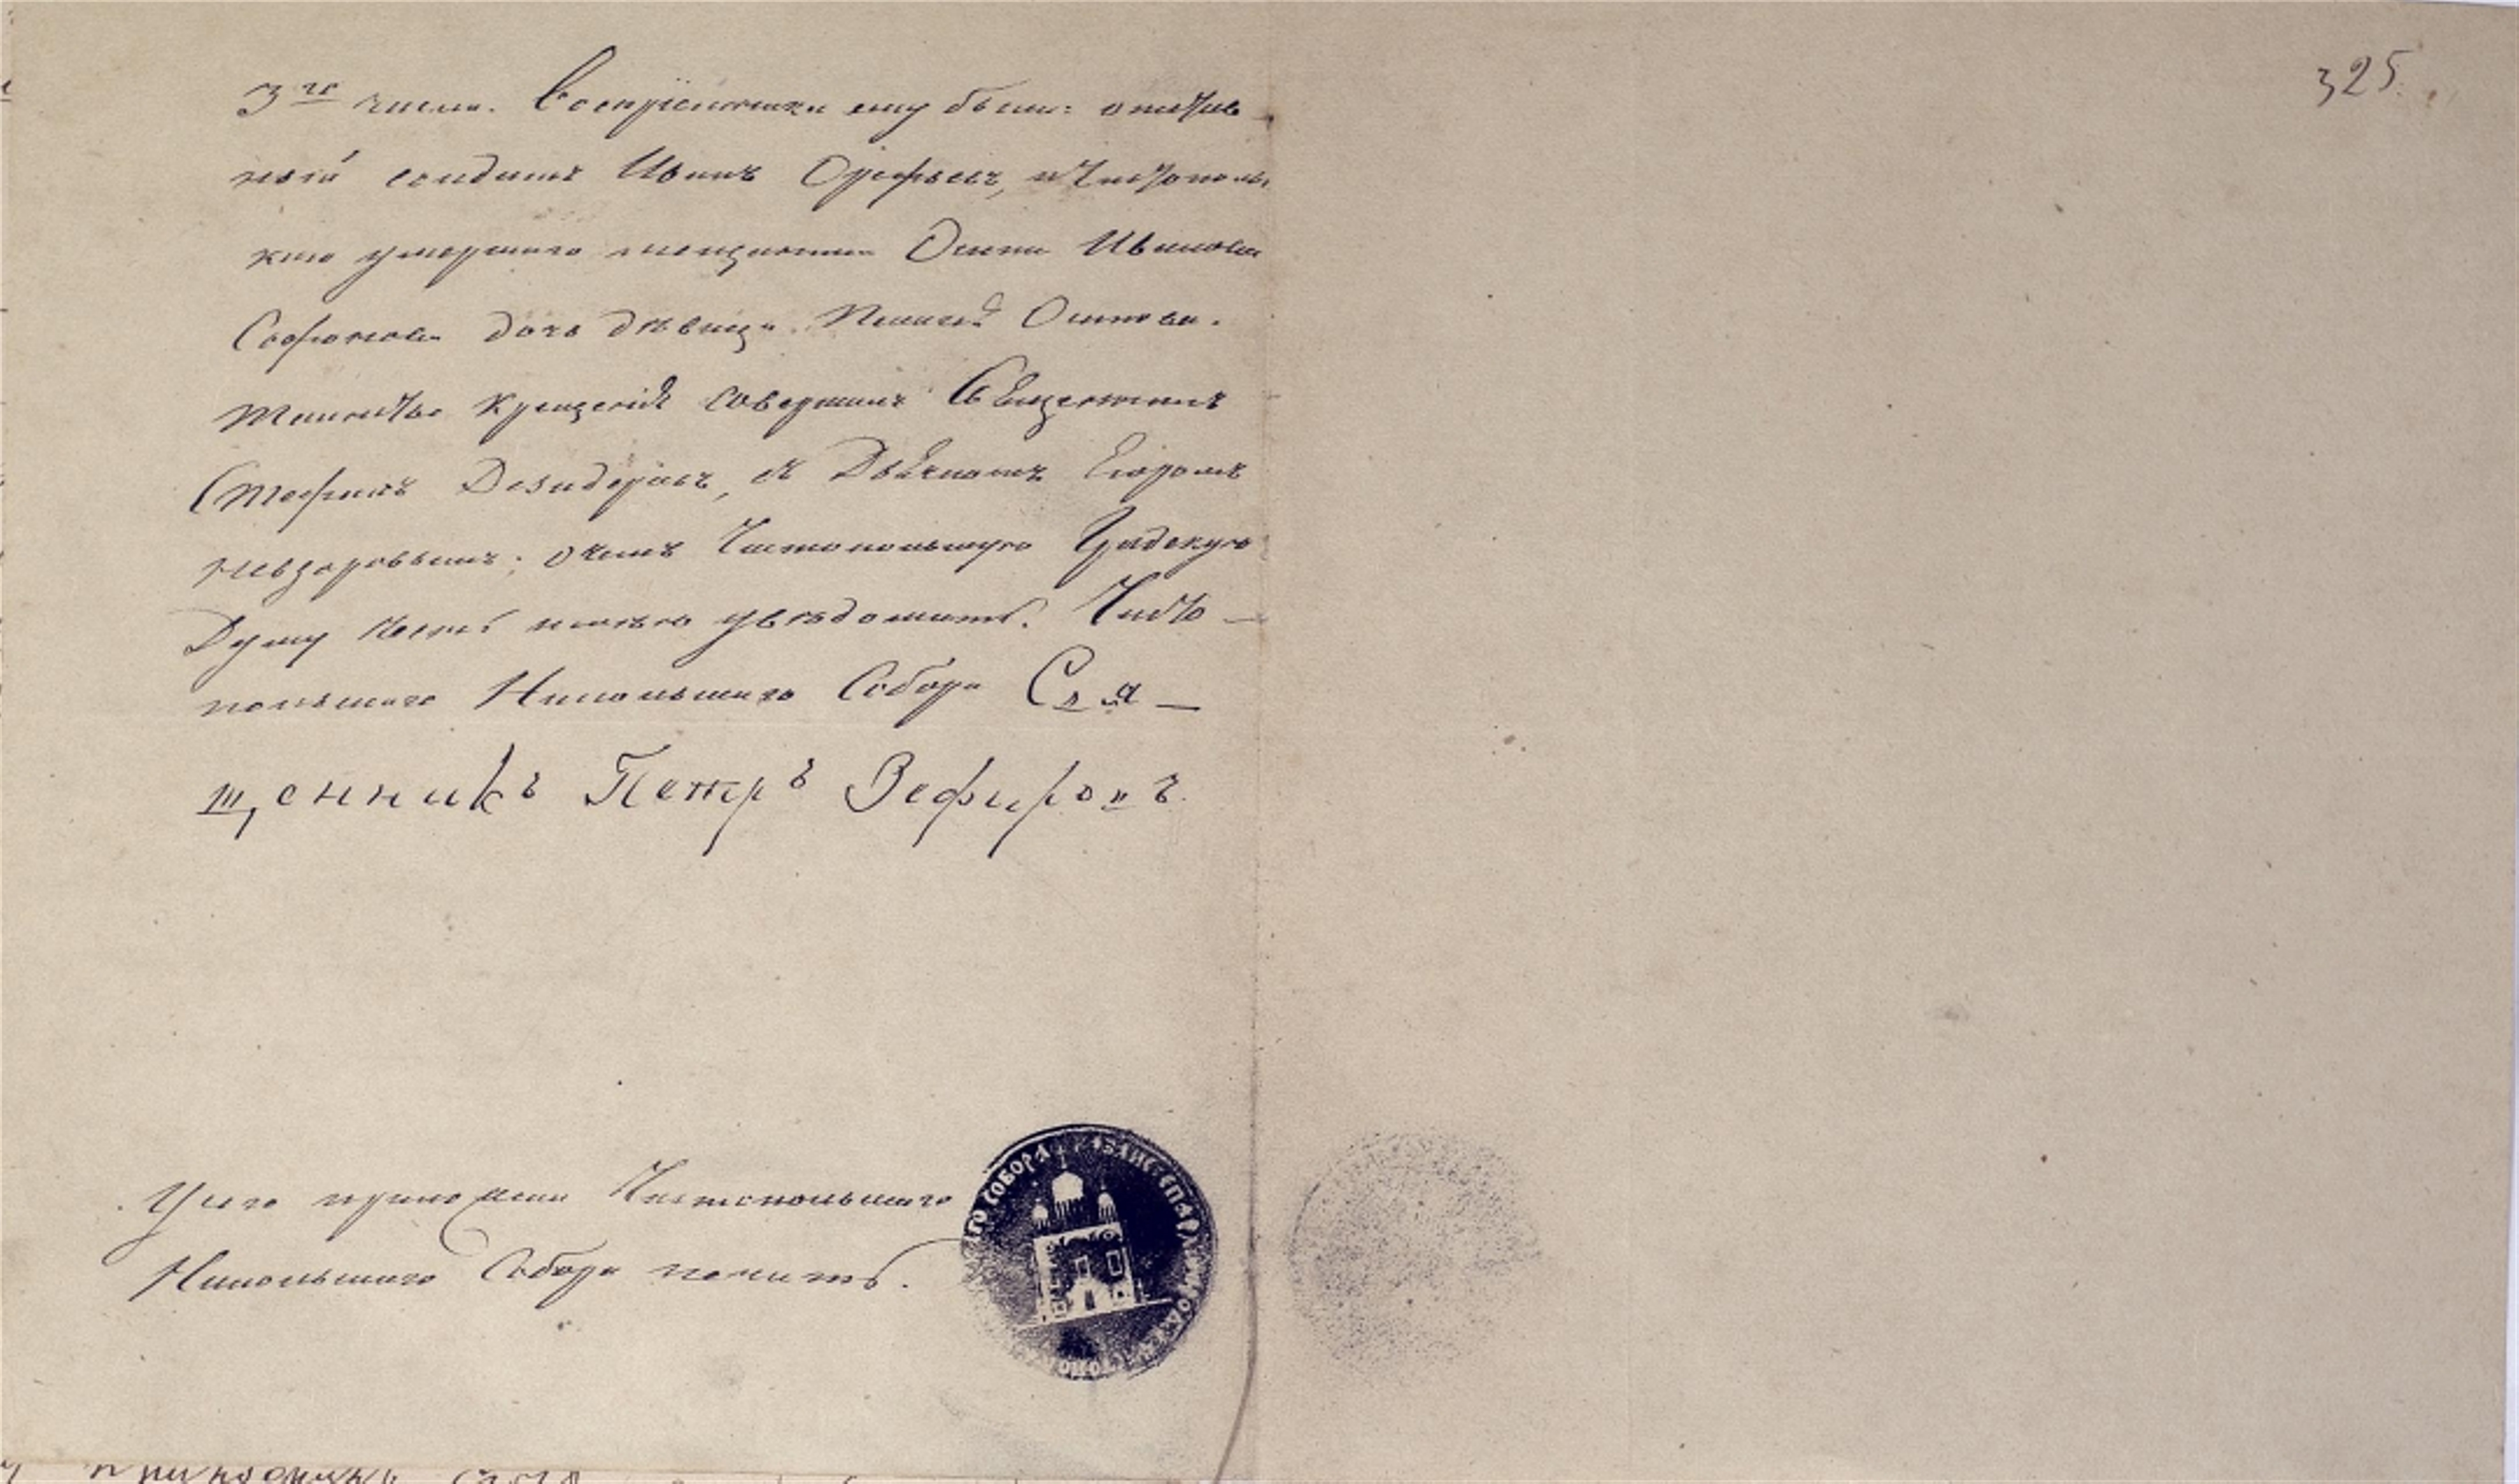 3го числа. Воспріемники ему были: отстав
ной солдатъ Иванъ Орефьевъ, и Чистопольс
каго умершаго мещанина Осипа Иванова
Софонова дочь дѣвица Осипова.
Таинство Крещенія совершилъ Священникъ
Стефанъ Дезидерьевъ, съ Дьячкомъ Егоромъ
Невзоровымъ; о чемъ Чистопольскую Градскую
Думу честь имѣю увѣдомить. Чисто-
польскаго Никольскаго Собора Свя-
щенникъ Петръ Зефировъ.
У сего приложена Чистопольскаго
Никольскаго Собора печать.
ГО СОБОРА
325